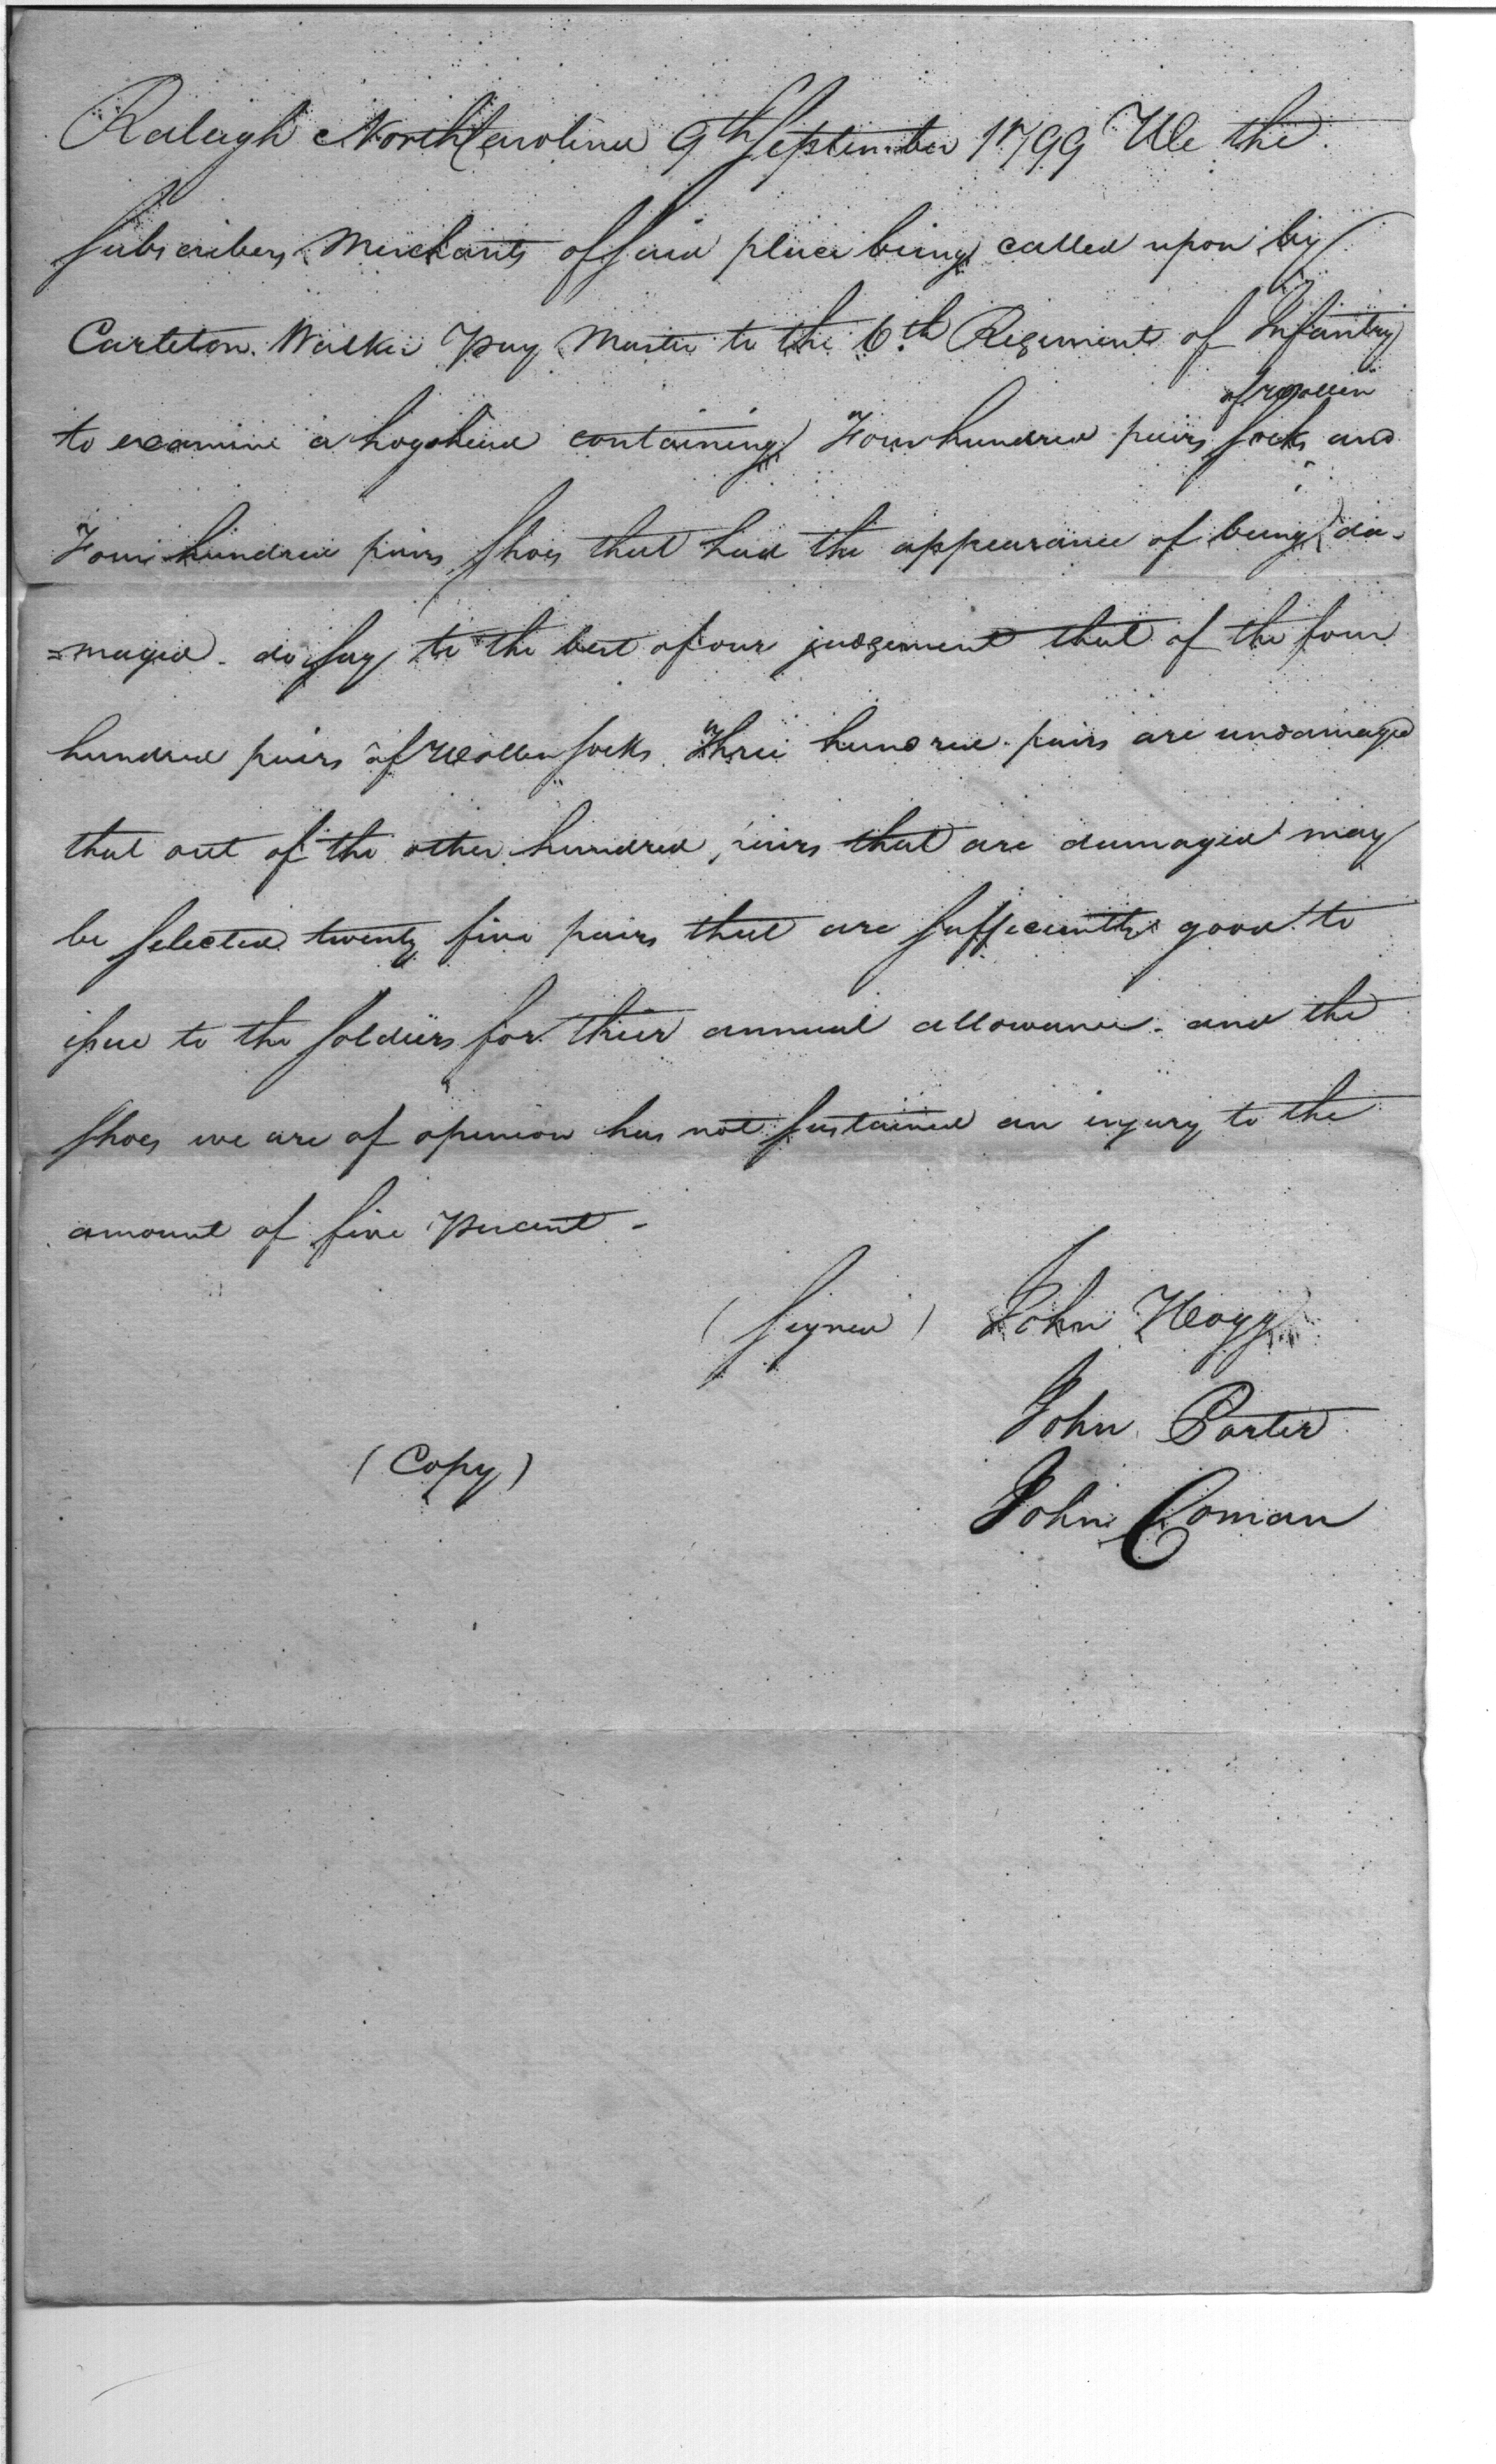 Raleigh North Carolina 9th September 1799 We the
subscribers Merchants of said place being called upon by
Carleton Walker Pay Master to the 6th Regiment of Infantry
of woollen
to examine a hogshead containing Four hundred pairs socks and
Four hundred pairs shoes that had the appearance of being da-
=maged - do say to the best of our judgement that of the four
hundred pairs of woollen socks Three hundred pairs are undamaged
that out of the other hundred pairs that are damaged may
be selected twenty five pairs that are sufficiently good to
issue to the soldiers for thier annual allowance - and the
shoes we are of opinion has not sustained an injury to the
amount of five percent -
(signed) John Hogg
John Porter
(Copy)
John Coman